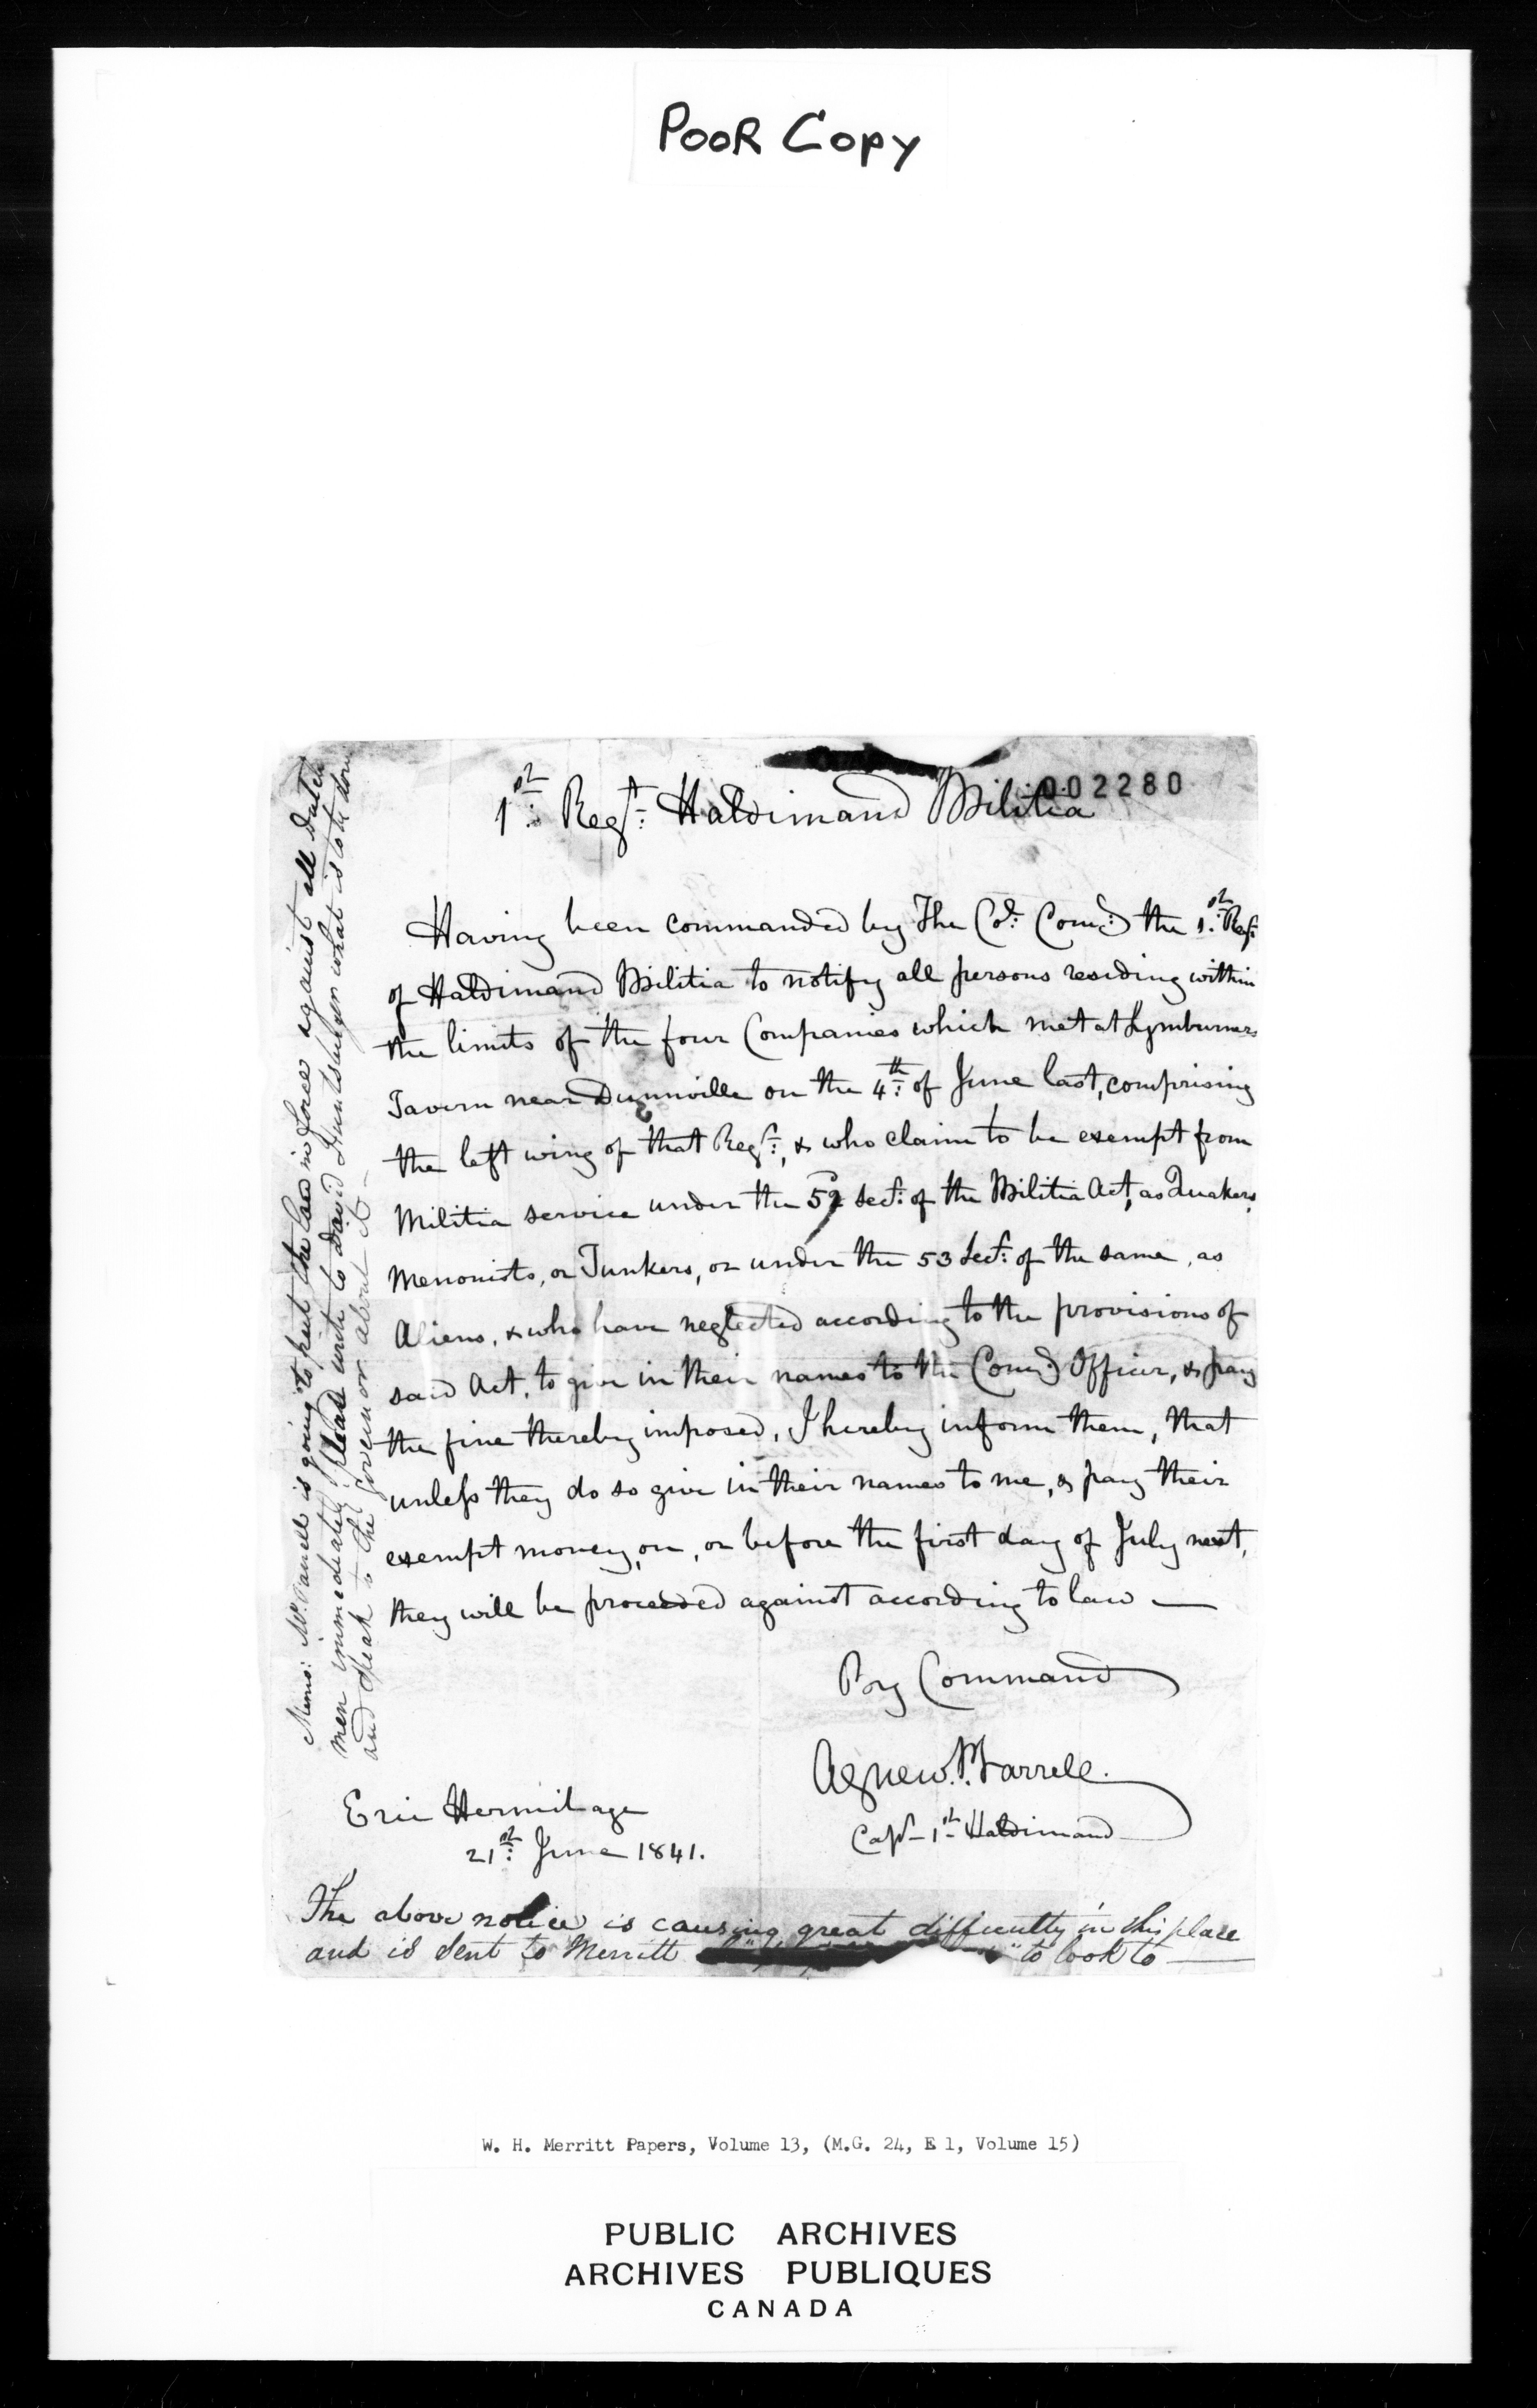 POOR COPY
002280
1st Regt. Haldimand Militia
Having been commanded by The Col. Comg. the 1st Regt.
of Haldimand Militia to notify all persons residing within
the limits of the four Companies which met at Lymburners
Tavern near Dunnville on the 4th of June last, comprising
the left wing of that Regt., & who claim to be exempt from
Militia service under the 52 Sect. of the Militia Act, as Quakers,
Menonists, or Tunkers, or under the 53 Sect. of the same, as
Aliens, & who have neglected according to the provisions of
said Act, to give in their names to the Comg. Officer, & pay
the fine thereby imposed, I hereby inform them, that
unless they do so give in their names to me, & pay their
exempt money, on, or before the first day of July next,
they will be proceeded against according to law —
By Command
Agnew P. Farrell.
Capt. 1st Haldimand
Erie Hermitage
21st June 1841.
The above notice is causing great difficulty in this place
and is sent to Merritt to look to —
Memo: Mr. Farrell is going to put the law in force against all Dutch
men immediately, please write to David what is to be done
and speak to the Governor about it —
W. H. Merritt Papers, Volume 13, (M.G. 24, E 1, Volume 15)
PUBLIC ARCHIVES
ARCHIVES PUBLIQUES
CANADA